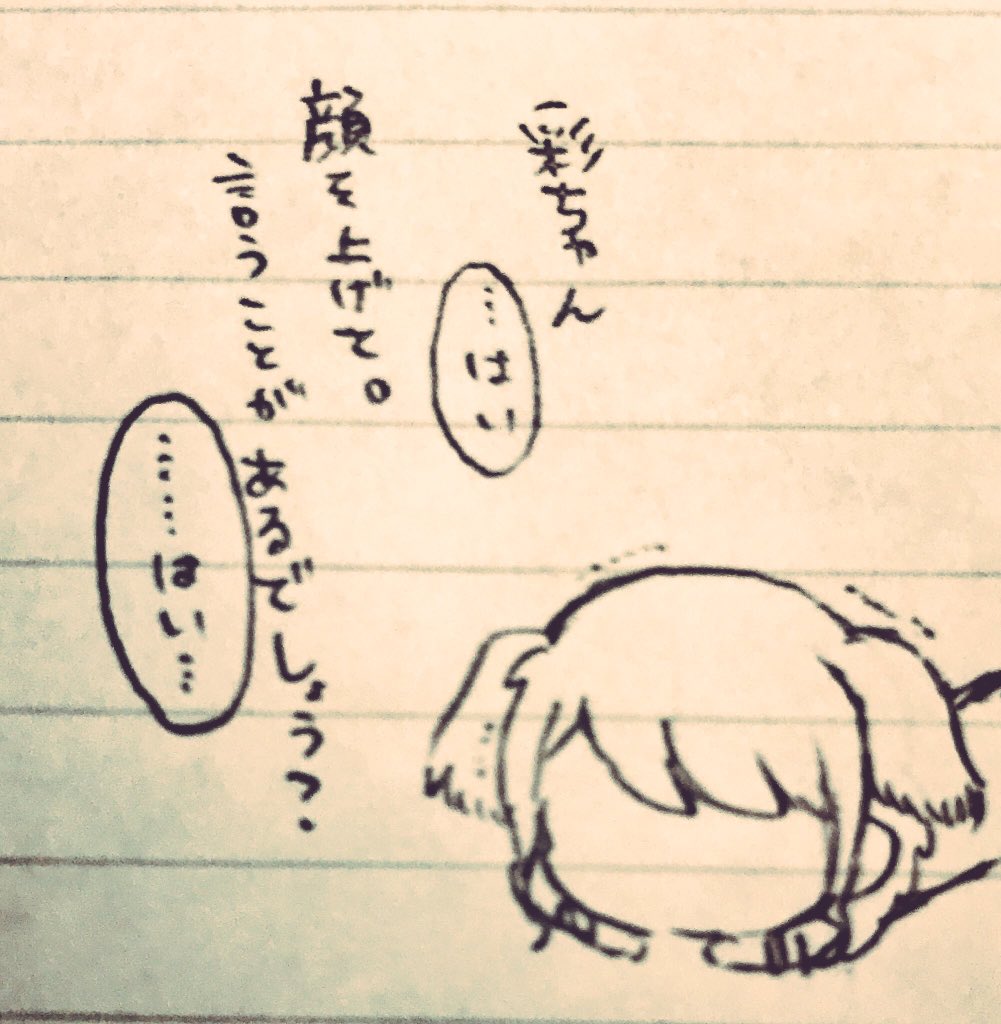 彩ちゃん
…はい
顔を上げて。
言うことがあるでしょう？
……はい…